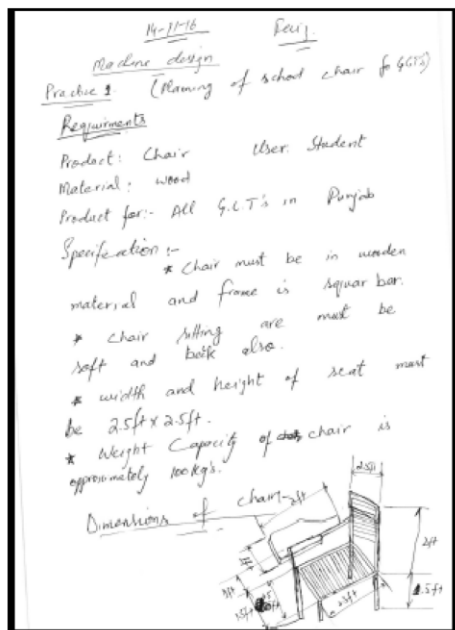 14-11-16
Machine design
Practice 1. (Planning of school chair for GCT's)
Requirments
Product: Chair User: Student
Material: wood
Product for:- All G.C.T's in Punjab
Specification:-
* Chair must be in wooden
material and frame is squar bar.
* chair sitting are must be
soft and back also.
* width and height of seat must
be 2.5ft x 2.5ft.
* Weight Capacity of chair is
approximately 100kg's.
Dimensions of chair:-
2ft
2.5ft
1ft
2ft
2.5ft
1.5ft